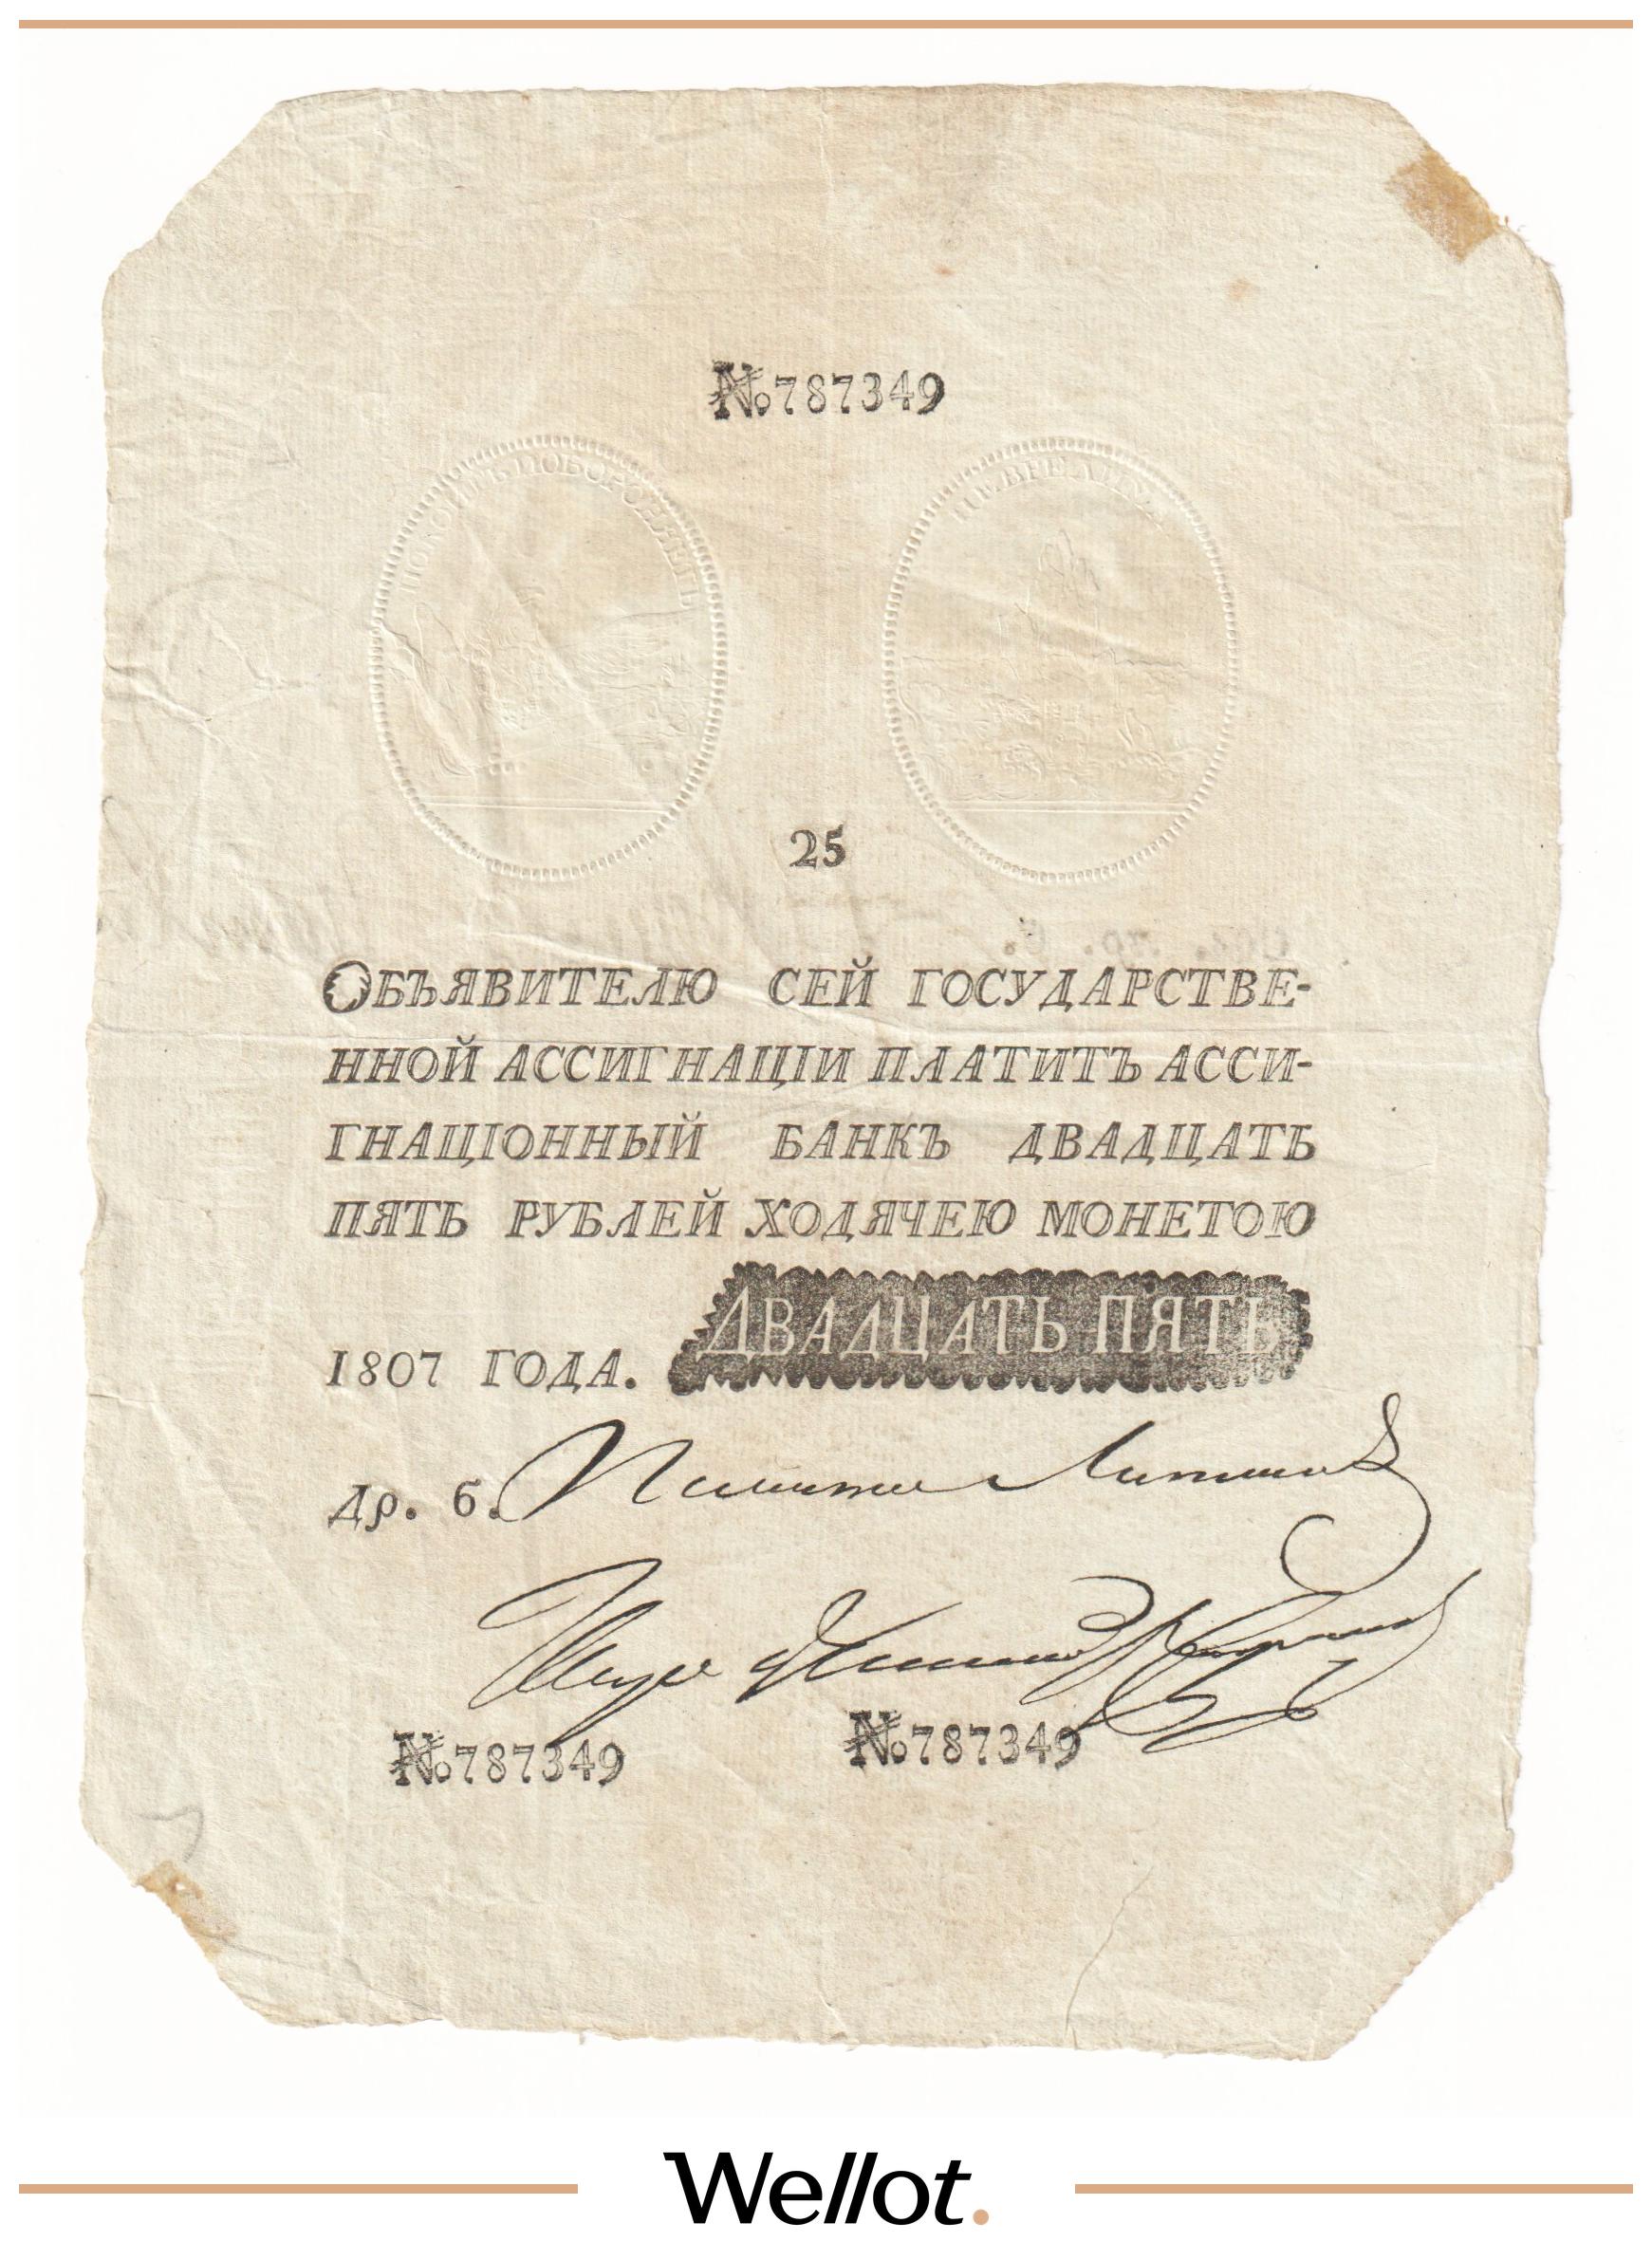 №787349
ПОКОИТЪ И ОБОРОНЯЕТЪ
НЕВРЕДИМА
25
ОБЪЯВИТЕЛЮ СЕЙ ГОСУДАРСТВЕ-
ННОЙ АССИГНАЦІИ ПЛАТИТЪ АССИ-
ГНАЦІОННЫЙ БАНКЪ ДВАДЦАТЬ
ПЯТЬ РУБЛЕЙ ХОДЯЧЕЮ МОНЕТОЮ
ДВАДЦАТЬ ПЯТЬ
1807 ГОДА.
др. б.
№787349 №787349
Wellot.